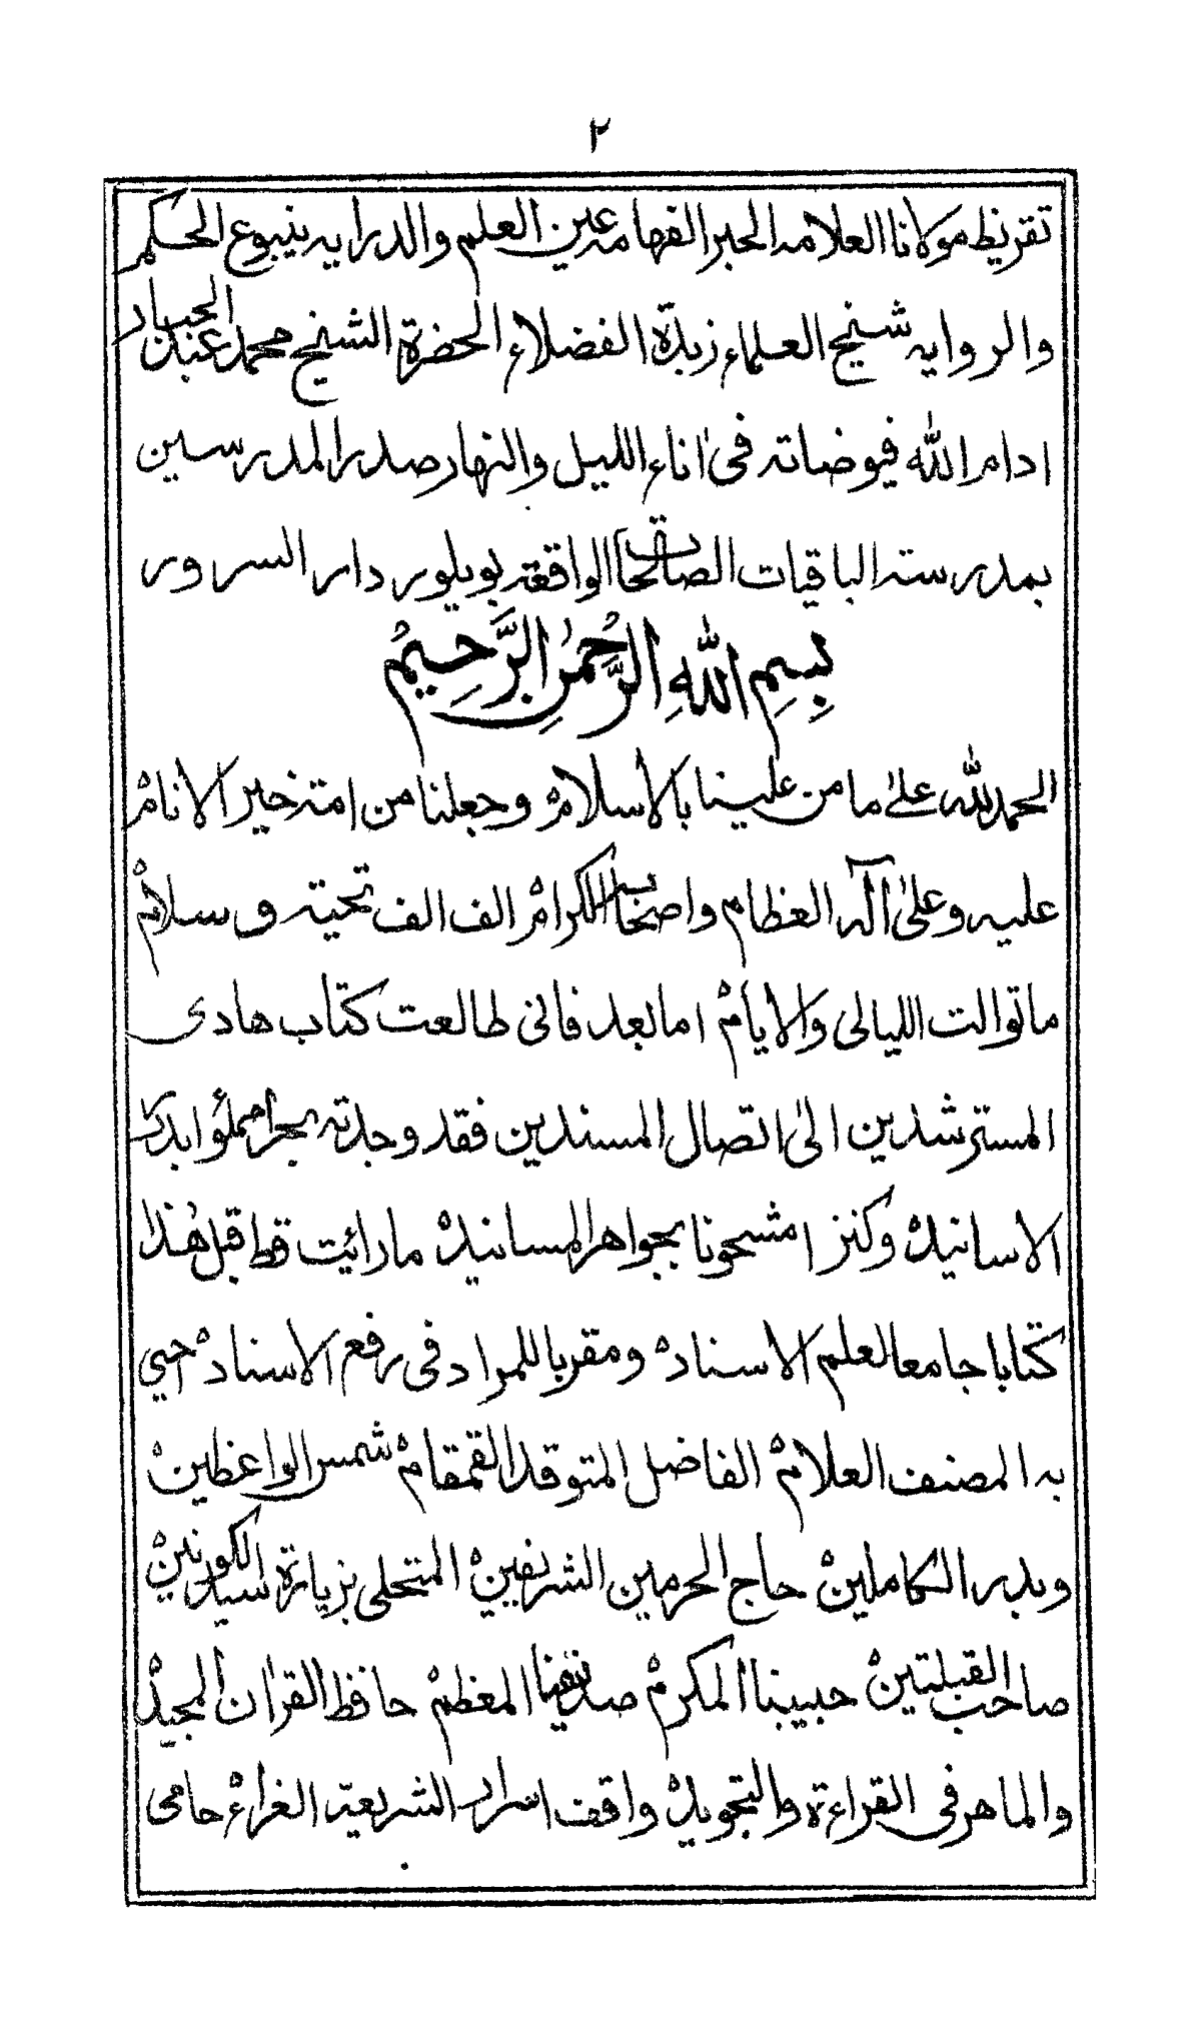 ٢
تقريظ مولانا العلامه الحبر الفهامه عين العلم والدرايه ينبوع الحكم
والروايه شيخ العلماء زبدة الفضلاء الحضرة الشيخ محمد عبد الجبار
ادام الله فيوضاته فى اٰناء الليل والنهار صدر المدرسين
بمدرسة الباقيات الصالحات الواقعة بويلور دار السرور
بِسمِ اللهِ الرَّحمٰنِ الرَّحِيمِ
الحمد لله علىٰ ما من علينا بالاسلام وجعلنا من امة خير الانام
عليه وعلىٰ آله العظام واصحابه الكرام الف الف تحية وسلام
ما توالت الليالى والايام اما بعد فانى طالعت كتاب هادى
المسترشدين الىٰ اتصال المسندين فقد وجدته بحرا مملوٴا بدرر
الاسانيد وكنزا مشحونا بجواهر المسانيد ما رائيت قط قبل هٰذا
كتابا جامعا لعلم الاسناد ومقربا للمراد فى رفع الاسناد حيي
به المصنف العلام الفاضل المتوقد القمقام شمس الواعظين
وبدر الكاملين حاج الحرمين الشريفين المتحلى بزيارة سيد الكونين
صاحب القبلتين حبيبنا المكرم صديقنا المعظم حافظ القراٰن المجيد
والماهر فى القراءة والتجويد واقف اسرار الشريعة الغراء حامى